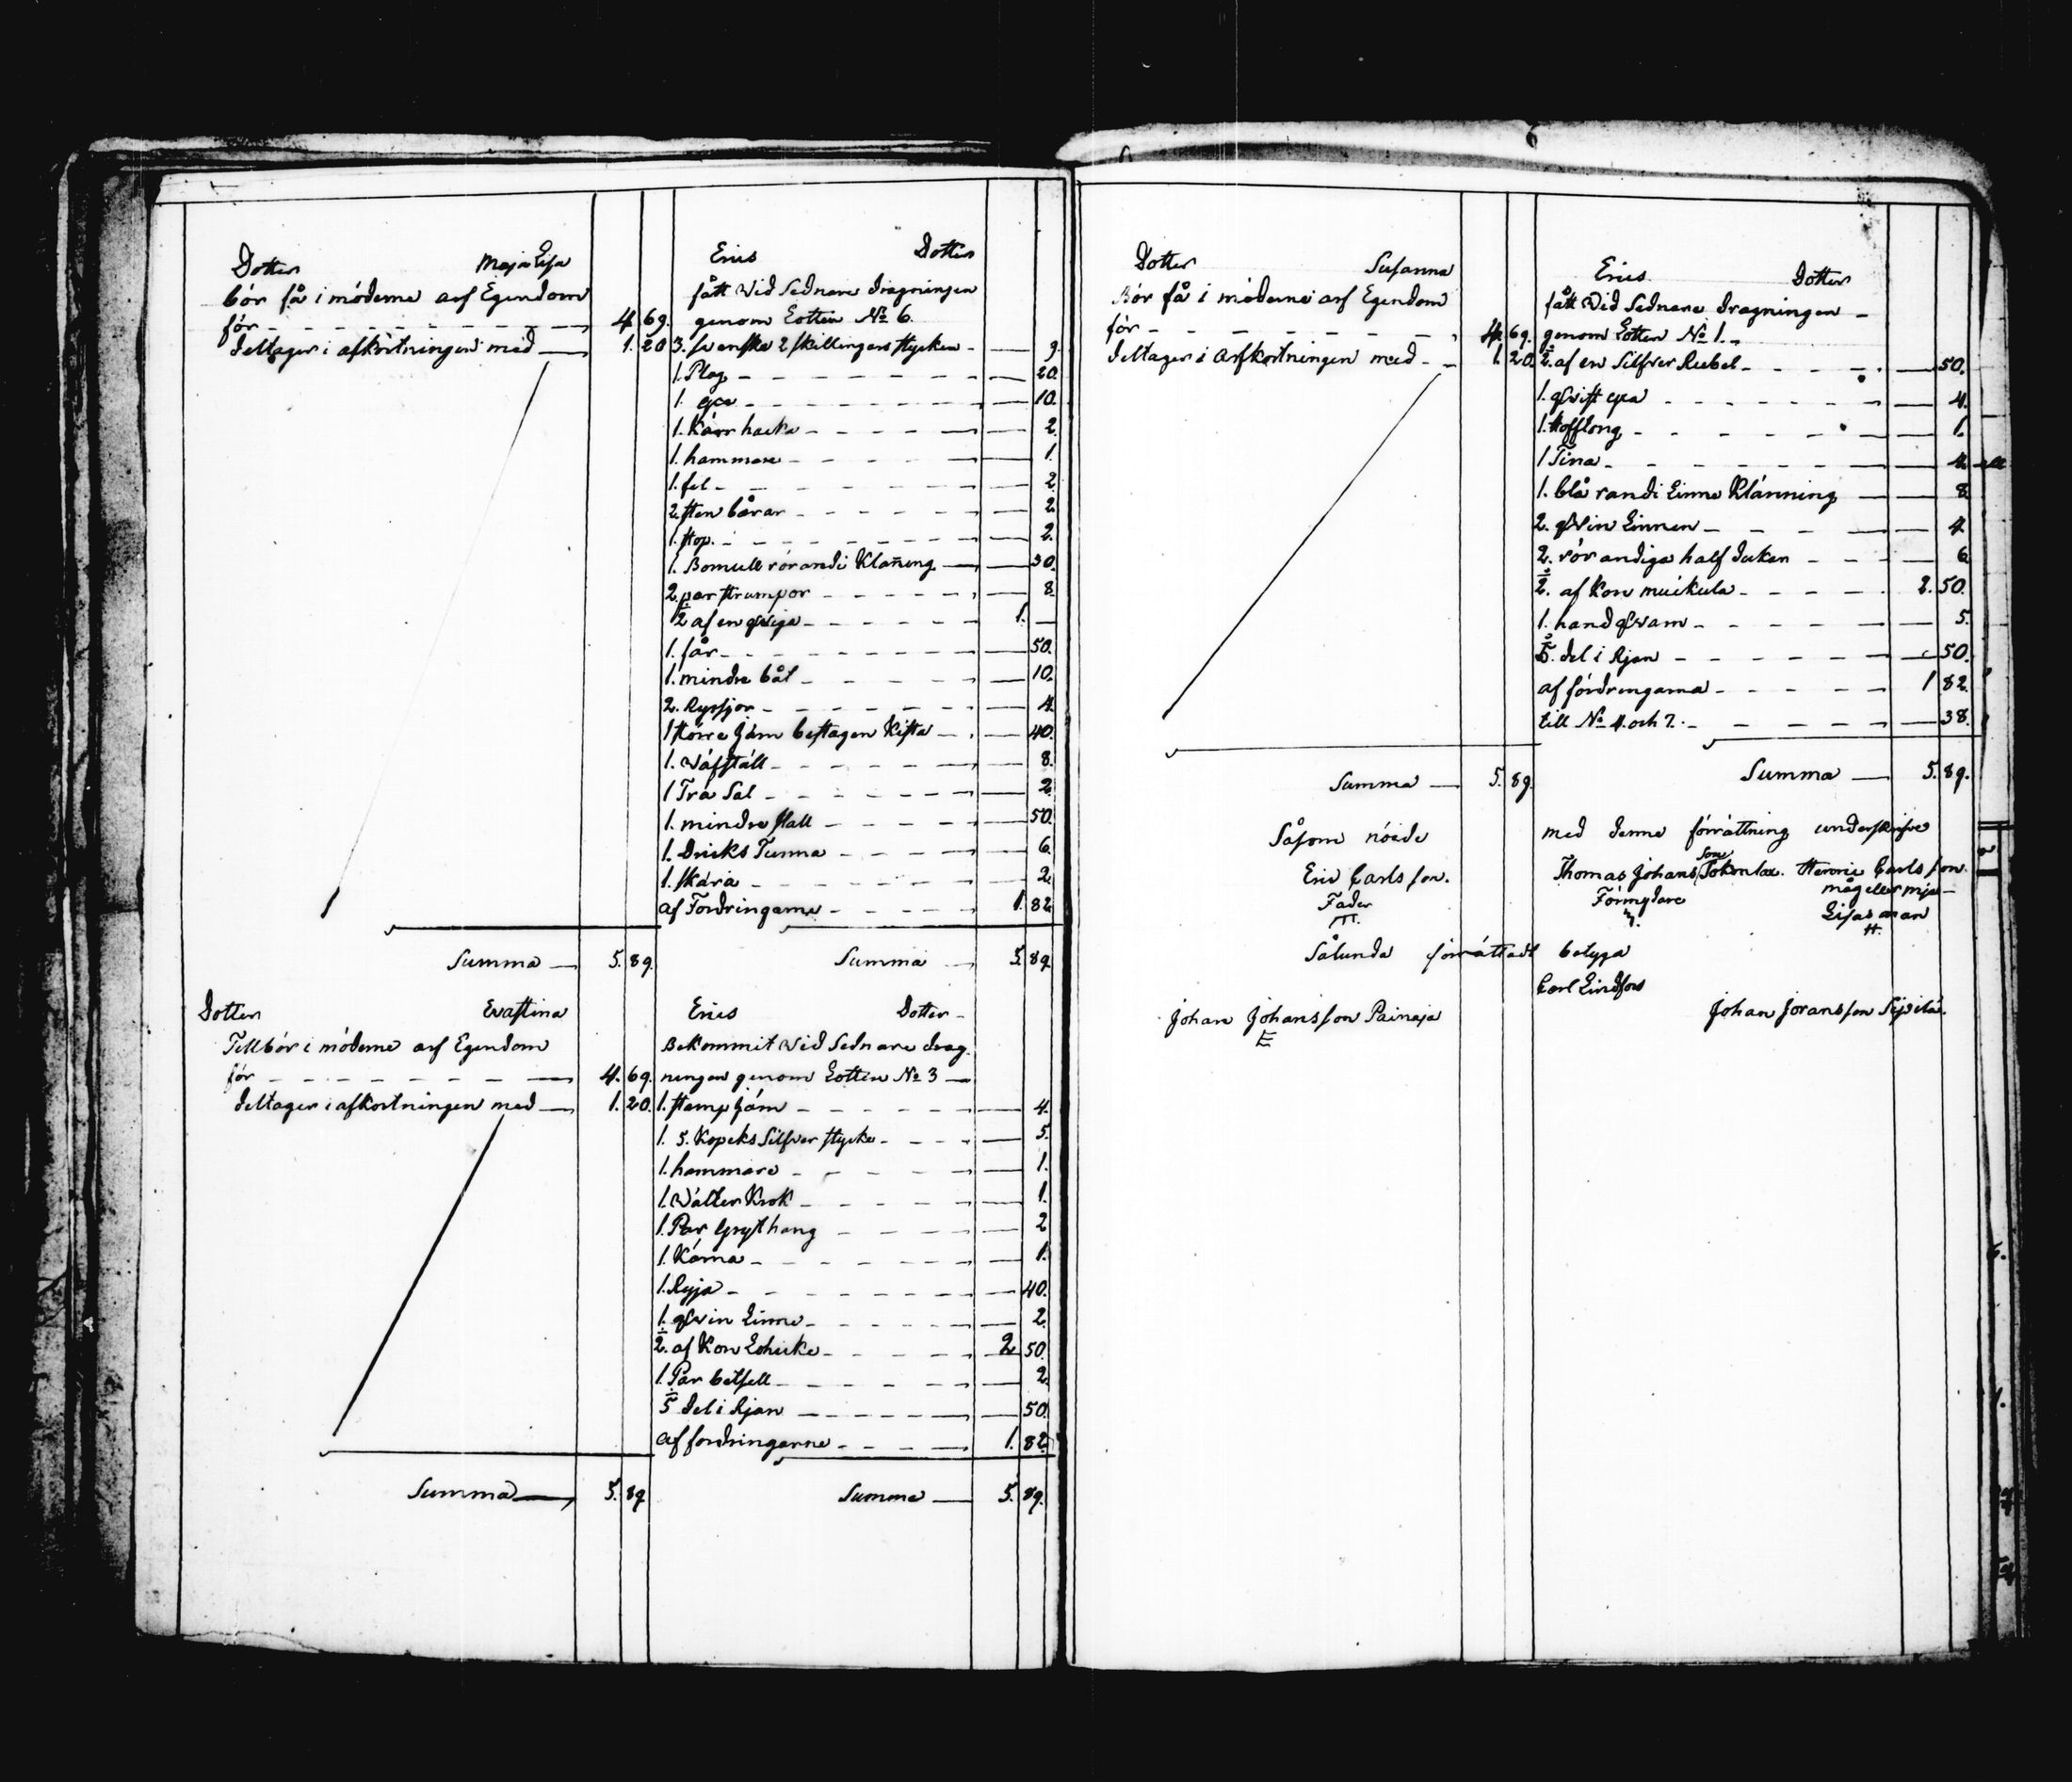 Dotter Maja Lisa
bör få i möderne arf Egendom
för 4. 69.
deltager i afkortningen med 1. 20
Erics Dotter
fått wid Sednare dragningen
genom Lotten No 6.
3. svenske 2 skillingars stycken 9.
1. Plog 20.
1. 10.
1. Kärr hacka 2.
1. hammare 1.
1. fil 2.
2. sten bårar 2.
1. stop. 2.
1. Bomull rörandi Klan̄ing 30.
2. par strumpor 8.
½ af en qwiga 1.
1. får 50.
1. mindre båt 10.
2. Ryssjor 4.
1 större järn beslagen Kista 40.
1. wäfställ 8.
1 Trä Sal 2.
1. mindre stall 50.
1. Dricks Tunna 6.
1. skära 2.
af Fordringarne 1. 82
Summa 5. 89.
Summa 5. 89.
Dotter Evastina
Tillbör i möderne arf Egendom
för 4. 69.
deltager i afkortningen med 1. 20.
Erics Dotter
Bekommit wid Sednare drag
ningen genom Lotten No 3
1. stamp järn 4.
1. 5. Kopeks Silfver stycke 5.
1. hammare 1.
1. wälter Krok 1.
1. Par Grythang 2
1. Kärna 1.
1. Ryja 40.
1. qwin Linne 2.
½. af Kon Lohicke 2 50.
1. Par betsell 2.
⅕ del i Rian 50.
af fordringarne 1. 82.
Summa 5. 89
Summa 5. 89.
Dotter Susanna
Bör få i möderne arf Egendom
för 4. 69.
deltager i Arfkortningen med 1. 20.
Erics Dotter
fått wid Sednare dragningen
genom Lotten No 1.
½. af en Silfver Rubel 50.
1. qwist yxa 4.
1. Hofftång 1.
1 Tina 4.
1. blå randi Linne Klänning 8
2. qwin Linnen 4.
2. rörandiga half duken 6
½. af Kon muikula 2. 50.
1. hand qwarn 5.
⅕. del i Rjan 50.
af fördringarna 1 82.
till No 4. och 7. 38.
Summa 5. 89.
Summa 5. 89.
Såsom nöjde med denne förrättning underskrifve
Eric Carlsson. Thomas Johansson Tokonlax. Henric Carlsson.
Fader Förmydare måg eller Maja
Lisas man
Sålunda förrättadt betyga
Carl Lindfors
Johan Johansson Painaja Johan Joransson Sipilä.